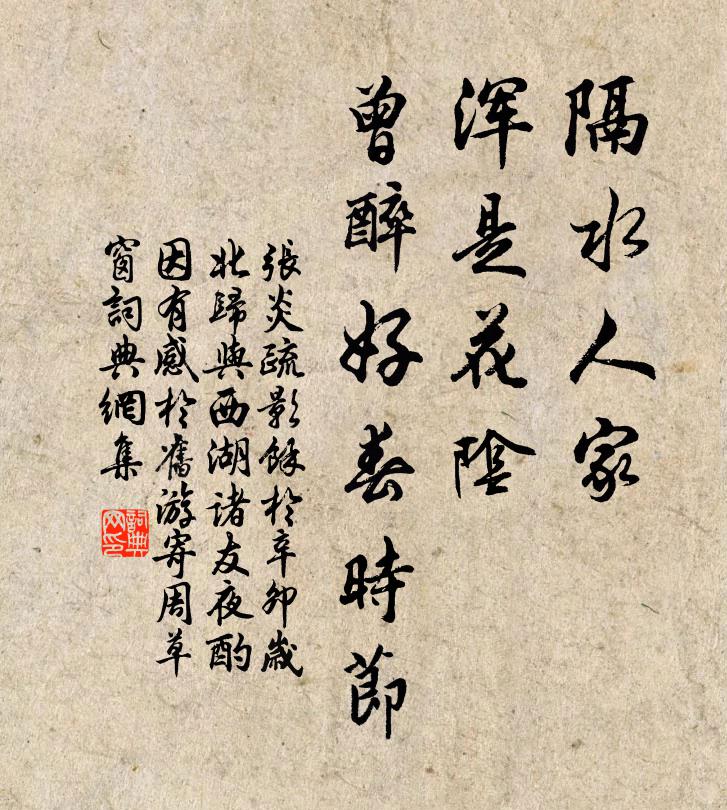 隔水人家
浑是花陰
曾醉好春時節
張炎疏影餘於辛卯歲
北歸與西湖諸友夜酌
因有感於舊游寄周草
窗詞典網集
詞典网印